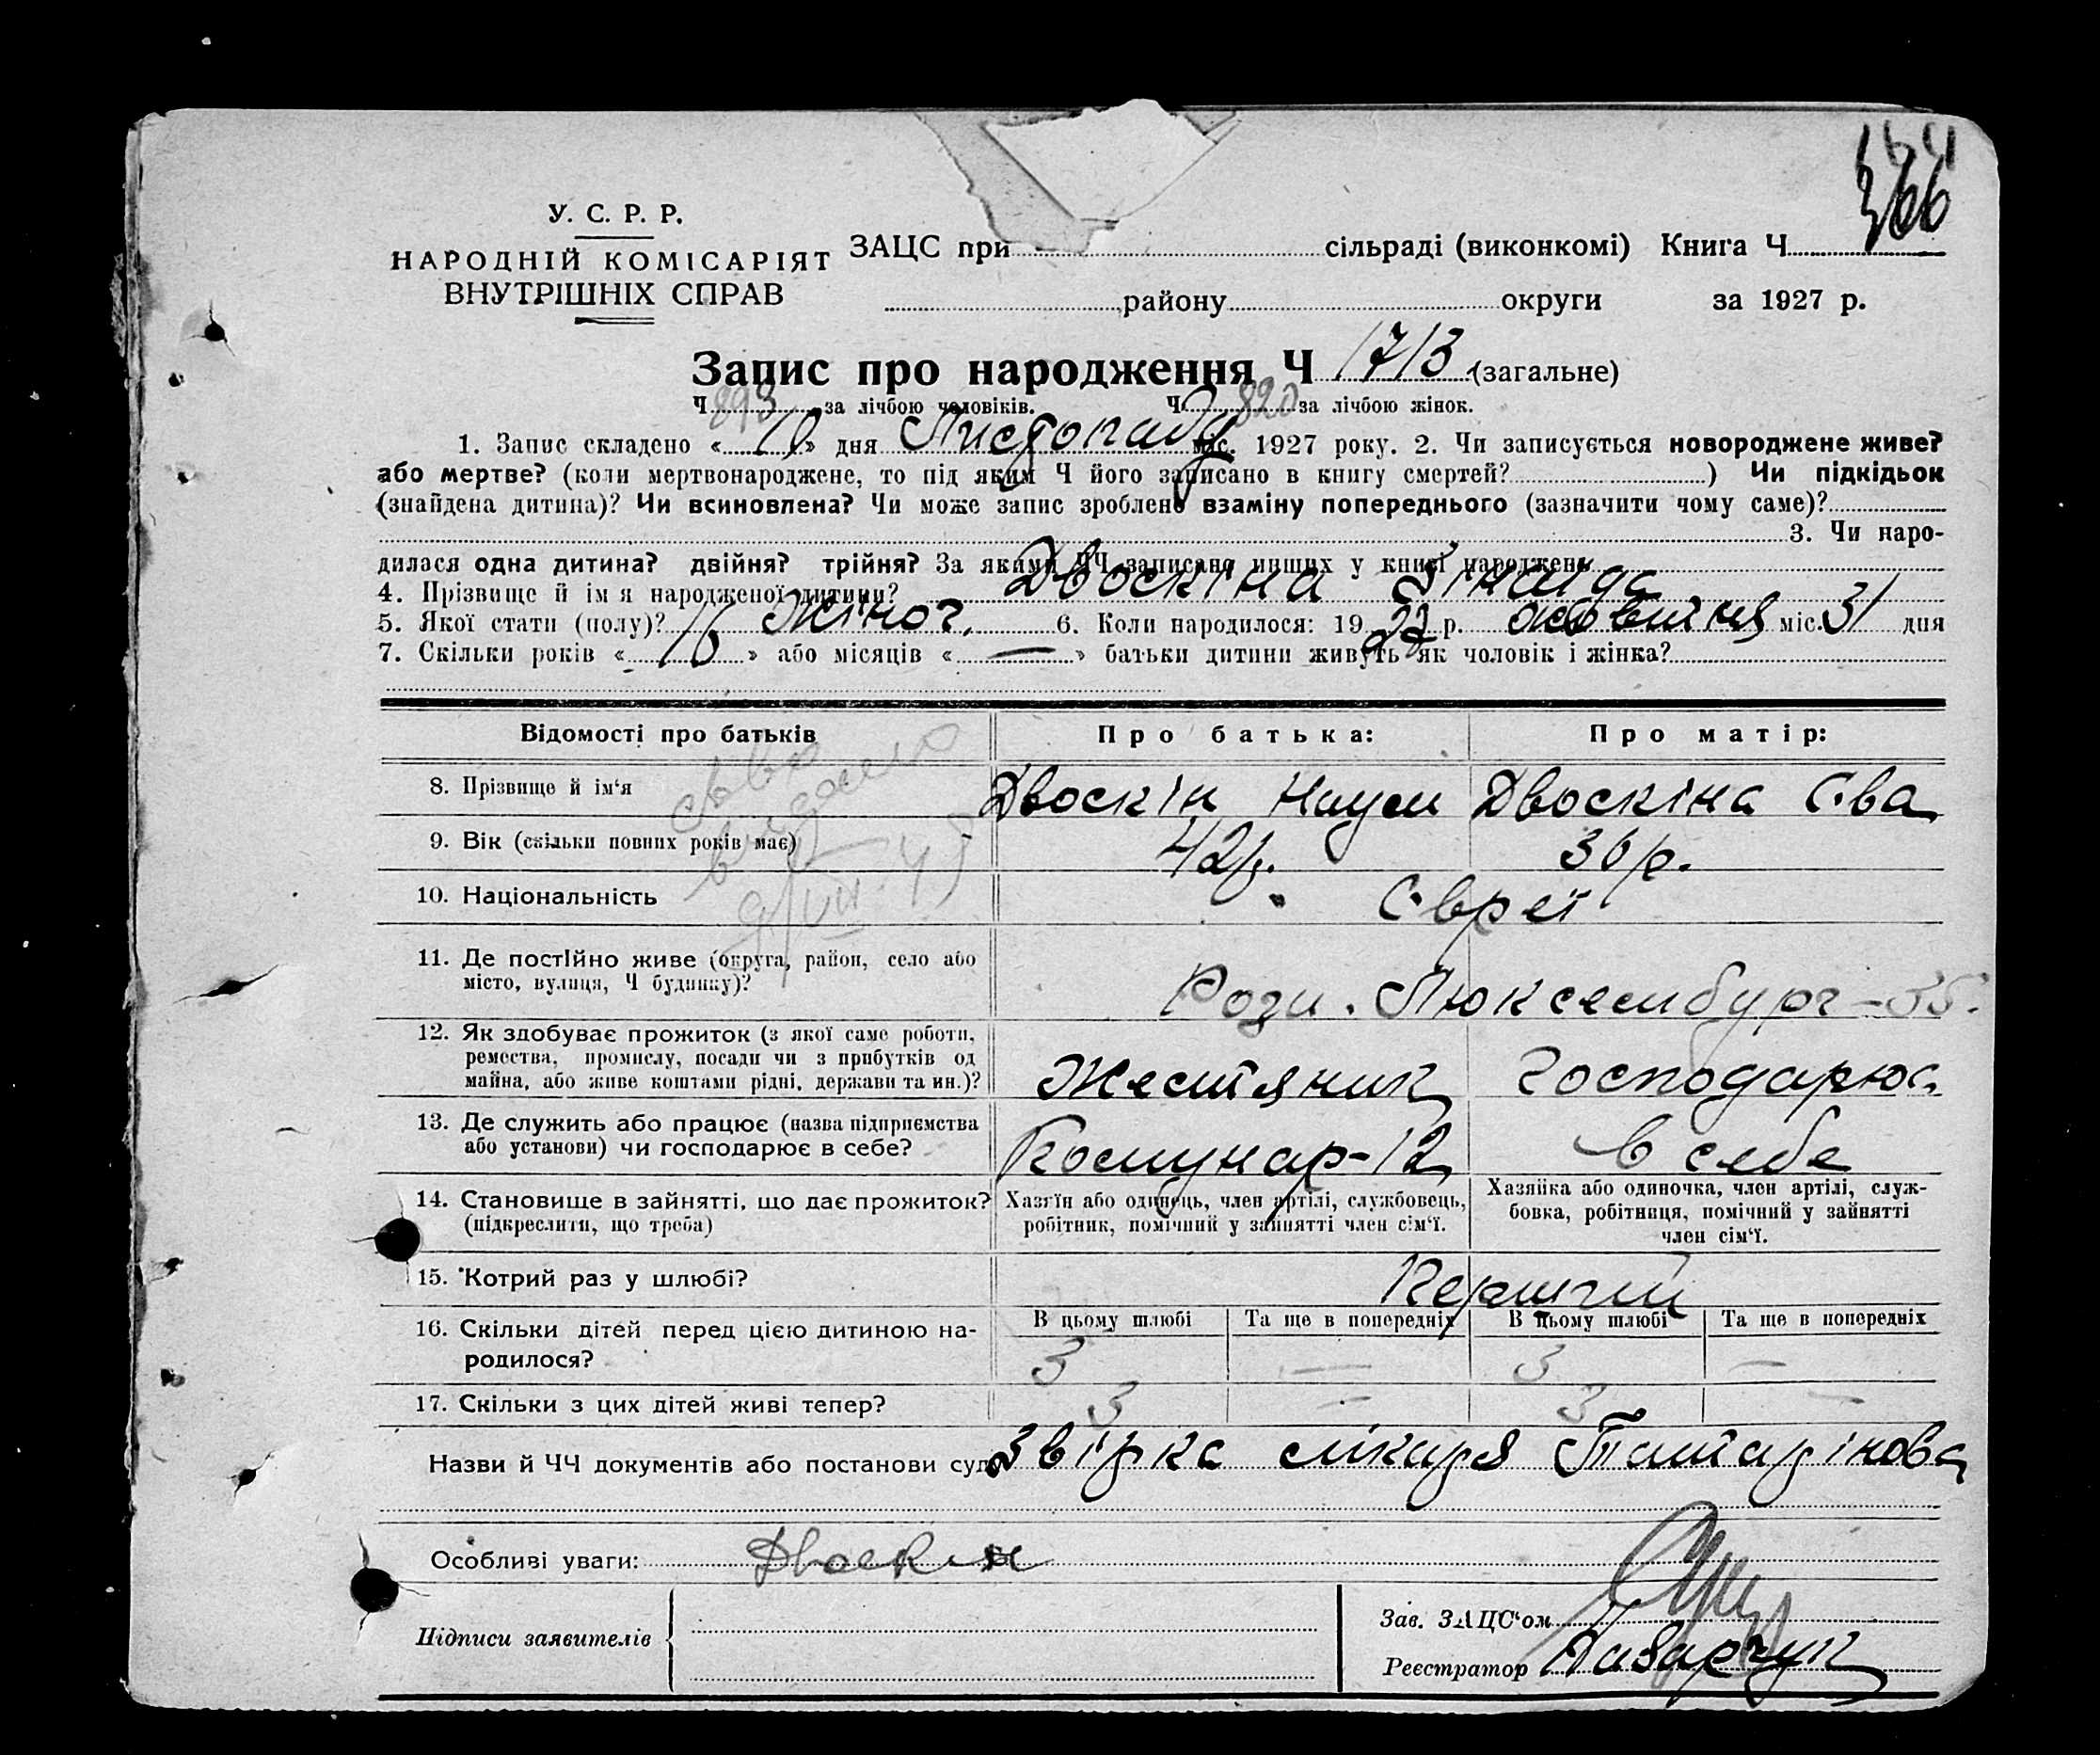 366
У. С. Р. Р.
НАРОДНІЙ КОМІСАРІЯТ
ВНУТРІШНІХ СПРАВ
ЗАЦС при сільраді (виконкомі) Книга Ч
району округи за 1927 р.
Запис про народження Ч 1713 (загальне)
Ч 893 за лічбою чоловіків. Ч 820 за лічбою жінок.
1. Запис складено « » дня Листопаду міс. 1927 року. 2. Чи записується новороджене живе?
або мертве? (коли мертвонароджене, то під яким Ч його записано в книгу смертей? ) Чи підкідьок
(знайдена дитина)? Чи всиновлена? Чи може запис зроблено взаміну попереднього (зазначити чому саме)?
3. Чи наро-
дилася одна дитина? двійня? трійня? За якими ЧЧ записано инших у книзі народжень
4. Прізвище й ім'я народженої дитини? Двоскіна Зінаїда
5. Якої стати (полу)? Жіноч. 6. Коли народилося: 1927 р. жовтня міс. 31 дня
7. Скільки років « 16 » або місяців « — » батьки дитини живуть як чоловік і жінка?
Відомості про батьків
Про батька:
Про матір:
8. Прізвище й ім'я Двоскін Наум Двоскіна Єва
9. Вік (скільки повних років має) 42 р. 36 р.
10. Національність Євреї
11. Де постійно живе (округа, район, село або
місто, вулиця, Ч будинку)? Рози Люксембург - 35.
12. Як здобуває прожиток (з якої саме роботи,
ремества, промислу, посади чи з прибутків од
майна, або живе коштами рідні, держави та ин.)? Жестяник Господарює
13. Де служить або працює (назва підприємства
або установи) чи господарює в себе? Комунар-12 в себе
14. Становище в зайнятті, що дає прожиток?
(підкреслити, що треба)
Хазяїн або одинець, член артілі, службовець,
робітник, помічний у зайнятті член сім'ї.
Хазяйка або одиночка, член артілі, служ-
бовка, робітниця, помічний у зайнятті
член сім'ї.
15. Котрий раз у шлюбі? Перший
16. Скільки дітей перед цією дитиною на-
родилося?
В цьому шлюбі Та ще в попередніх В цьому шлюбі Та ще в попередніх
3 — 3 —
17. Скільки з цих дітей живі тепер? 3 — 3 —
Назви й ЧЧ документів або постанови суду Звірка лікаря Татарінова
Особливі уваги: Двоскин
Підписи заявителів
Зав. ЗАЦС'ом
Реєстратор Лазарчук